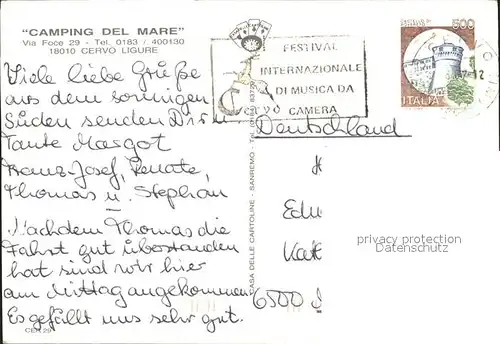 "CAMPING DEL MARE"
Via Foce 29 - Tel. 0183 / 400130
18010 CERVO LIGURE
Viele liebe Grüße
aus dem sonnigen
Süden senden Dir
Tante Margot
Franz-Josef, Renate,
Thomas u. Stephan
Nachdem Thomas die
Fahrt gut überstanden
hat sind wir hier
am Mittag angekommen
Es gefällt uns sehr gut.
CER 29
CASA DELLE CARTOLINE - SANREMO - Tel.
FESTIVAL
INTERNAZIONALE
DI MUSICA DA
CAMERA
500
ITALIA
Deutschland
Edu
6500
privacy protection
Datenschutz